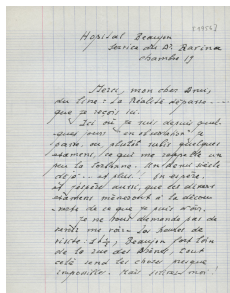 [1957]
Hopital Beaujon
Service du Dr. Racina
chambre 19
Merci, mon cher Ami,
du livre: La Réalité dépasse...
que je reçois ici.
Ici où je suis depuis quel-
ques jours en observation. Je
passe, ou plutôt subis quelques
examens, ce qui me rappelle un
peu la Sorbonne.
déjà... et plus! J'espère.
et j'espère aussi, que les divers
examens mèneront à la décou-
verte de ce que je suis
Je ne vous demande pas de
venir me voir. Les heures de
visite: Beaujon fort loin
de la rue des tout
cela rend les choses presque
impossibles. Mais moi!